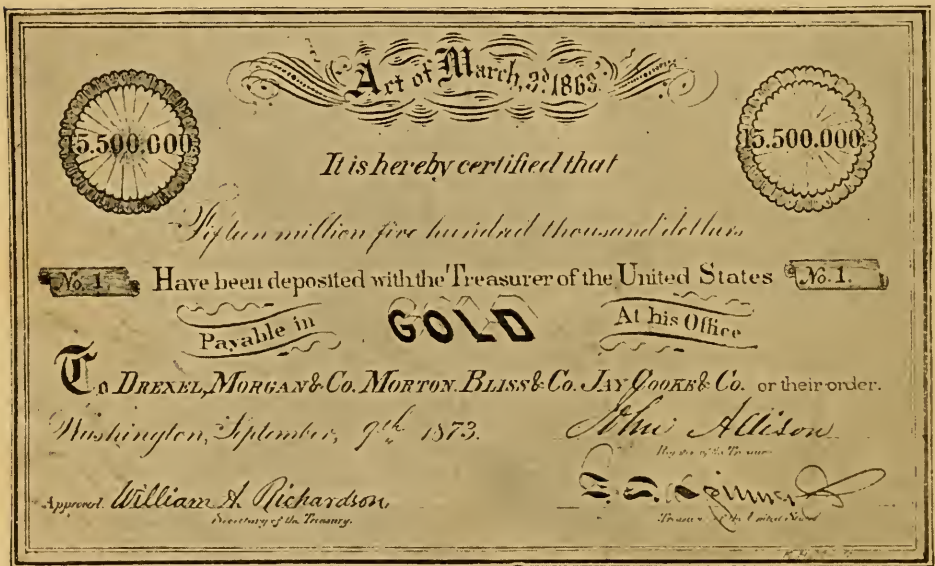 Act of March, 3d 1863.
15.500.000.
15.500.000.
It is hereby certified that
Fifteen million five hundred thousand dollars
No. 1. Have been deposited with the Treasurer of the United States No. 1.
Payable in GOLD At his Office
To DREXEL, MORGAN & Co. MORTON. BLISS & Co. JAY COOKE & Co. or their order.
Washington, September, 9th 1873. John Allison
Register of the Treasury
Approved. William A. Richardson, F. E. Spinner
Secretary of the Treasury. Treasurer of the United States